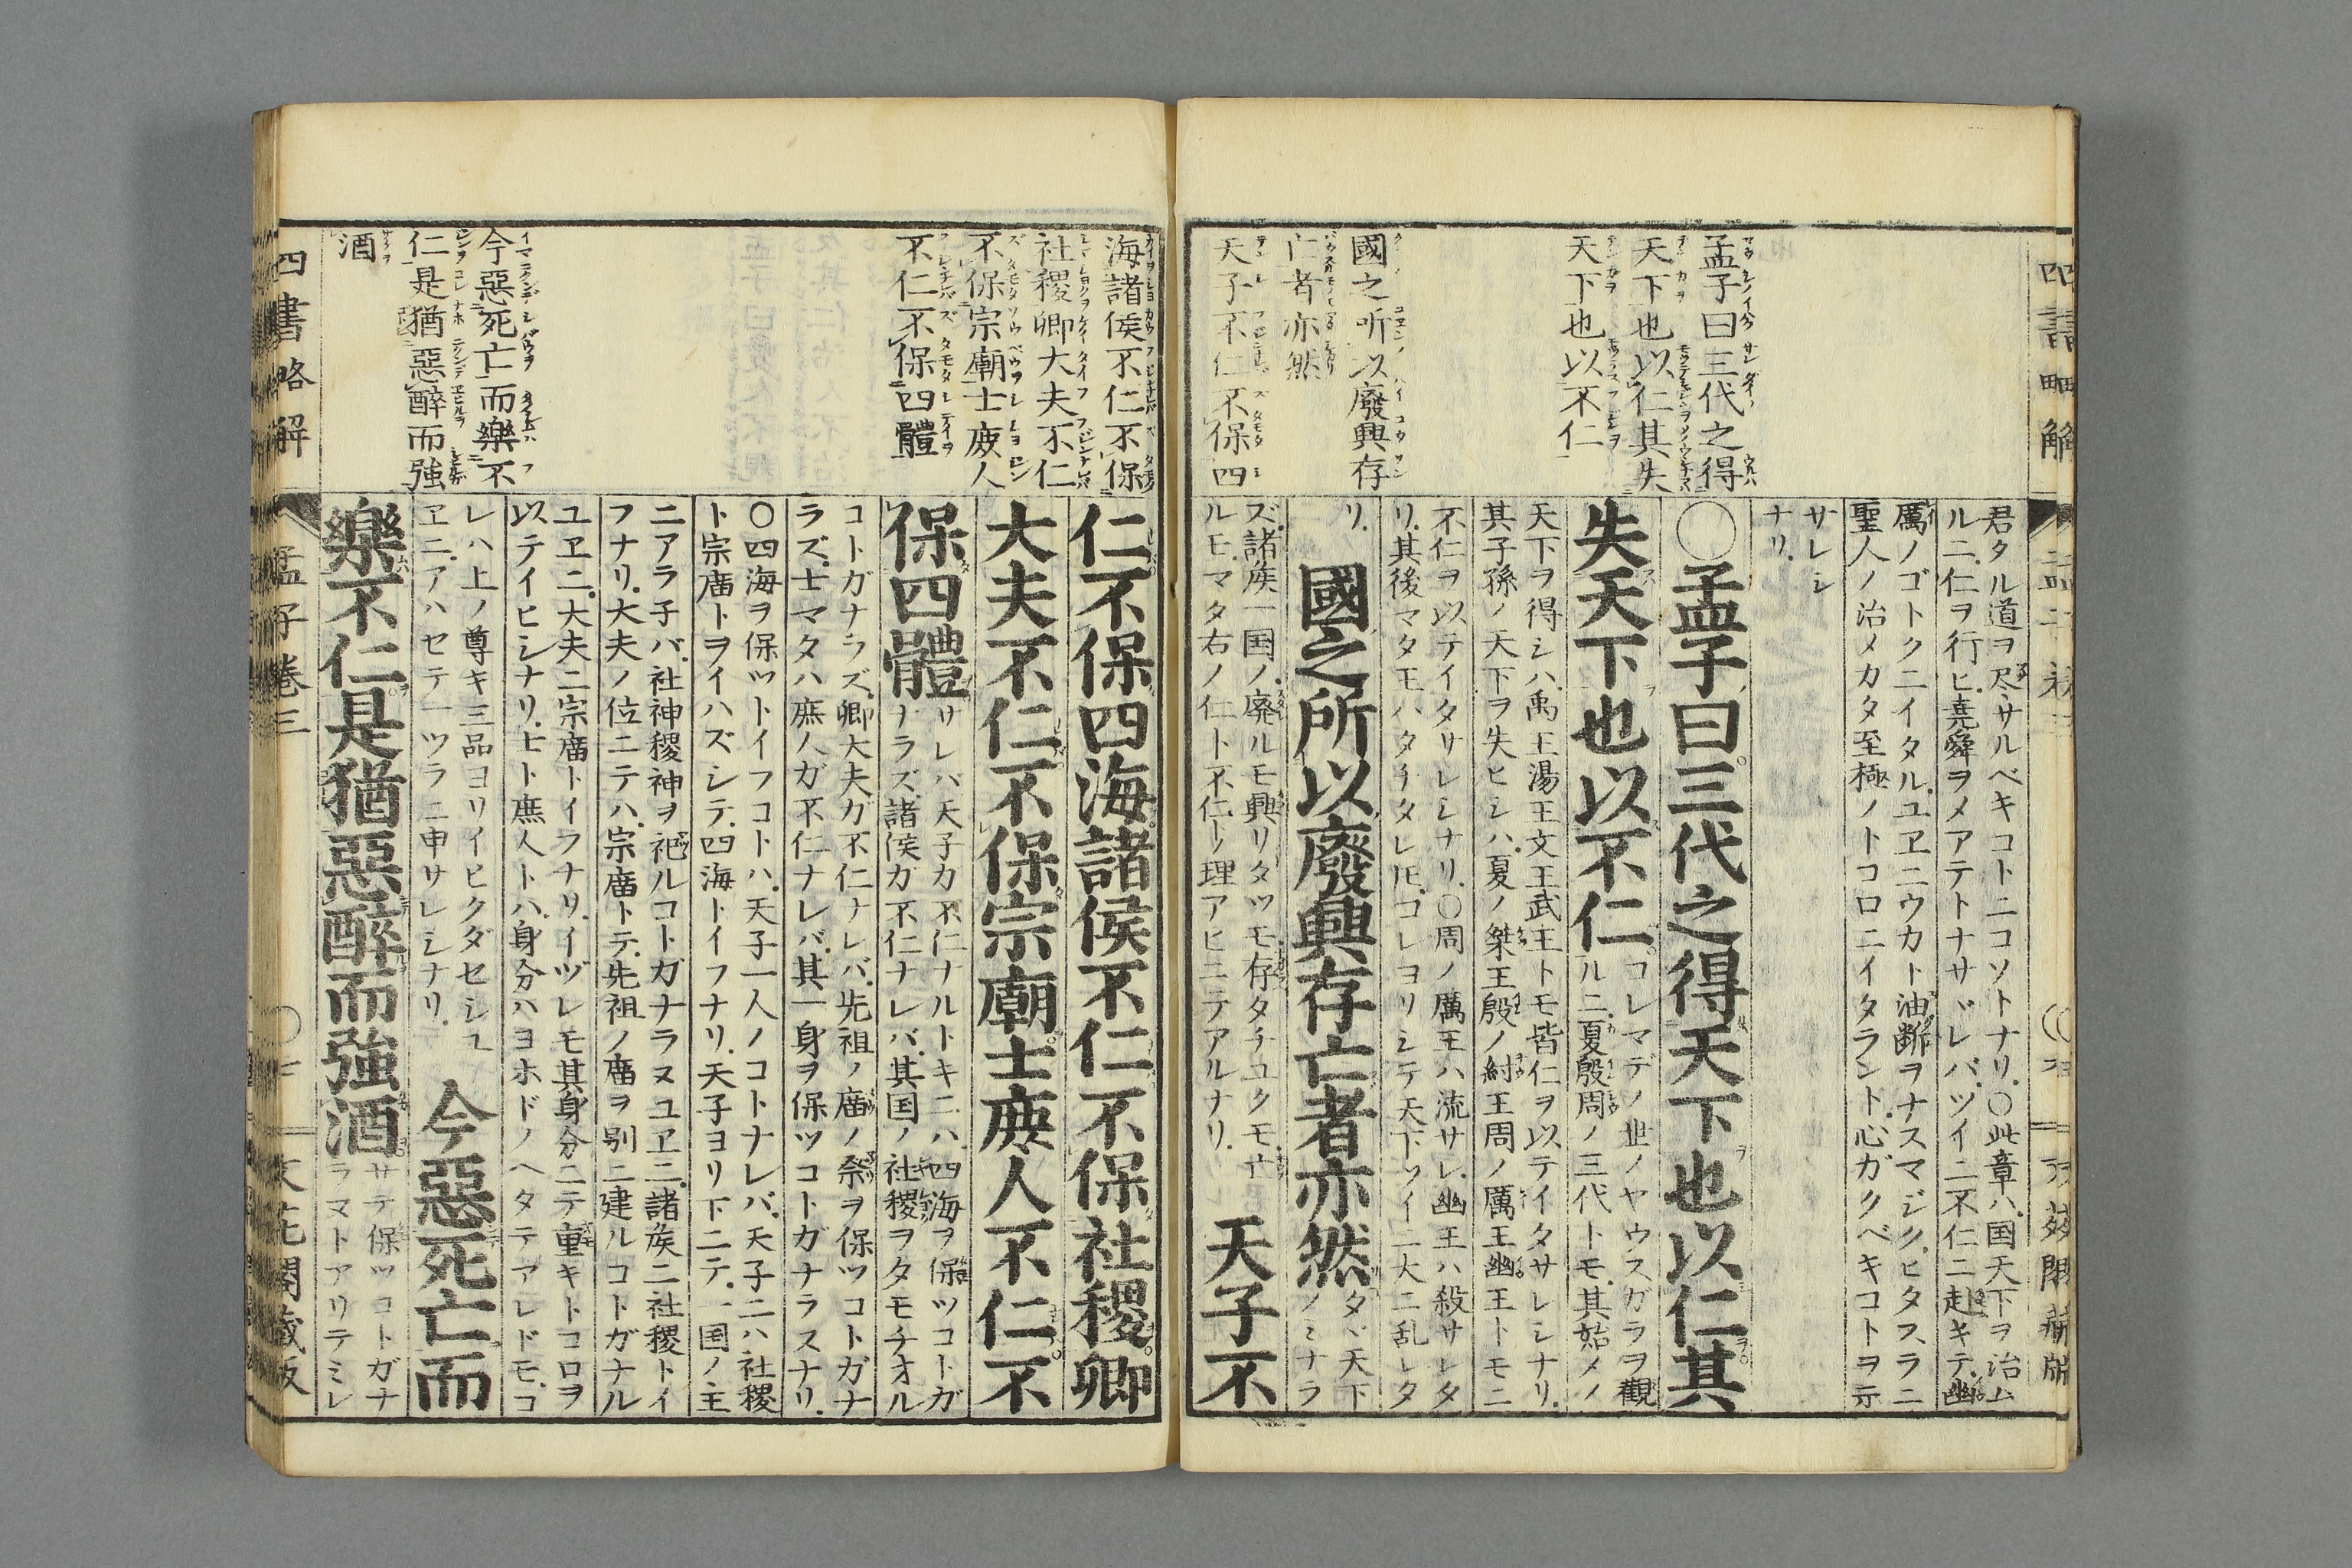 四書略解
孟子曰三代之得
天下也以仁其失
天下也以不仁
國之所以廢興存
亡者亦然
天子不仁不保四
君タル道ヲ尽サルベキコトニコソトナリ〇此章ハ国天下ヲ治ム
ル二仁ヲ行ヒ堯舜ヲメアテトナサヾレバツイニ不仁ニ赴キテ幽
厲ノゴトクニイタルユヱニウカト油断ヲナスマジクヒタスラニ
聖人ノ治メカタ至極ノトコロニイタラント心ガクベキコトヲ示
サレシ
ナリ
〇孟子曰三代之得天下也以仁其
失天下也以不仁
コレマデノ世ノヤウスガラヲ觀
ルニ夏殷周ノ三代トモ其始メノ
天下ヲ得シハ禹王湯王文王武王トモ皆仁ヲ以テイタサレシナリ
其子孫ノ天下ヲ失ヒシハ夏ノ桀王殷ノ紂王周ノ厲王幽王トモニ
不仁ヲ以テイタサレシナリ〇周ノ厲王ハ流サレ幽王ハ殺サレタ
リ其後マタモハタチタレ𪜈コレヨリシテ天下ツイニ大ニ乱レタ
リ
國之所以廢興存亡者亦然
タヾ天下
ノミナラ
ズ諸族一国ノ廃ルモ興リタツモ存タチユクモ亡
ルモマタ右ノ仁ト不仁トノ理アヒニテアルナリ
天子不
海諸侯不仁不保
社稷卿大夫不仁
不保宗廟士庻人
不仁不保四體
今惡死亡而樂不
仁是猶惡醉而強
酒
仁不保四海諸侯不仁不保社稷卿
大夫不仁不保宗廟士庻人不仁不
保四體
サレバ天子カ不仁ナルトキニハ四海ヲ保ツコトガ
ナラズ諸侯ガ不仁ナレバ其国ノ社稷ヲタモチオル
コトガナラズ卿大夫ガ不仁ナレバ先祖ノ庿ノ祭ヲ保ツコトガナ
ラズ士マタハ庶人ガ不仁ナレバ其一身ヲ保ツコトガナラスナリ
〇四海ヲ保ツトイフコトハ天子一人ノコトナレバ天子ニハ社稷
ト宗庿トヲイハズシテ四海トイフナリ天子ヨリ下ニテ一国ノ主
ニアラ子バ社神稷神ヲ祀ルコトガナラヌユヱニ諸族ニ社稷トイ
フナリ大夫ノ位ニテハ宗庿トテ先祖ノ庿ヲ別ニ建ルコトガナル
ユヱニ大夫ニ宗庿トイフナリイヅレモ其身分ニテ重キトコロヲ
以テイヒシナリ士ト庶人トハ身分ハヨホドノヘタテアレドモコ
レハ上ノ尊キ三品ヨリイヒクダセシユ
ヱニアハセテ一ツラニ申サレシナリ
今惡死亡而
樂不仁是猶惡醉而強酒
サテ保ツコトガナ
ラマトアリテミレ
四書略解
孟子卷三
文花閣藏版